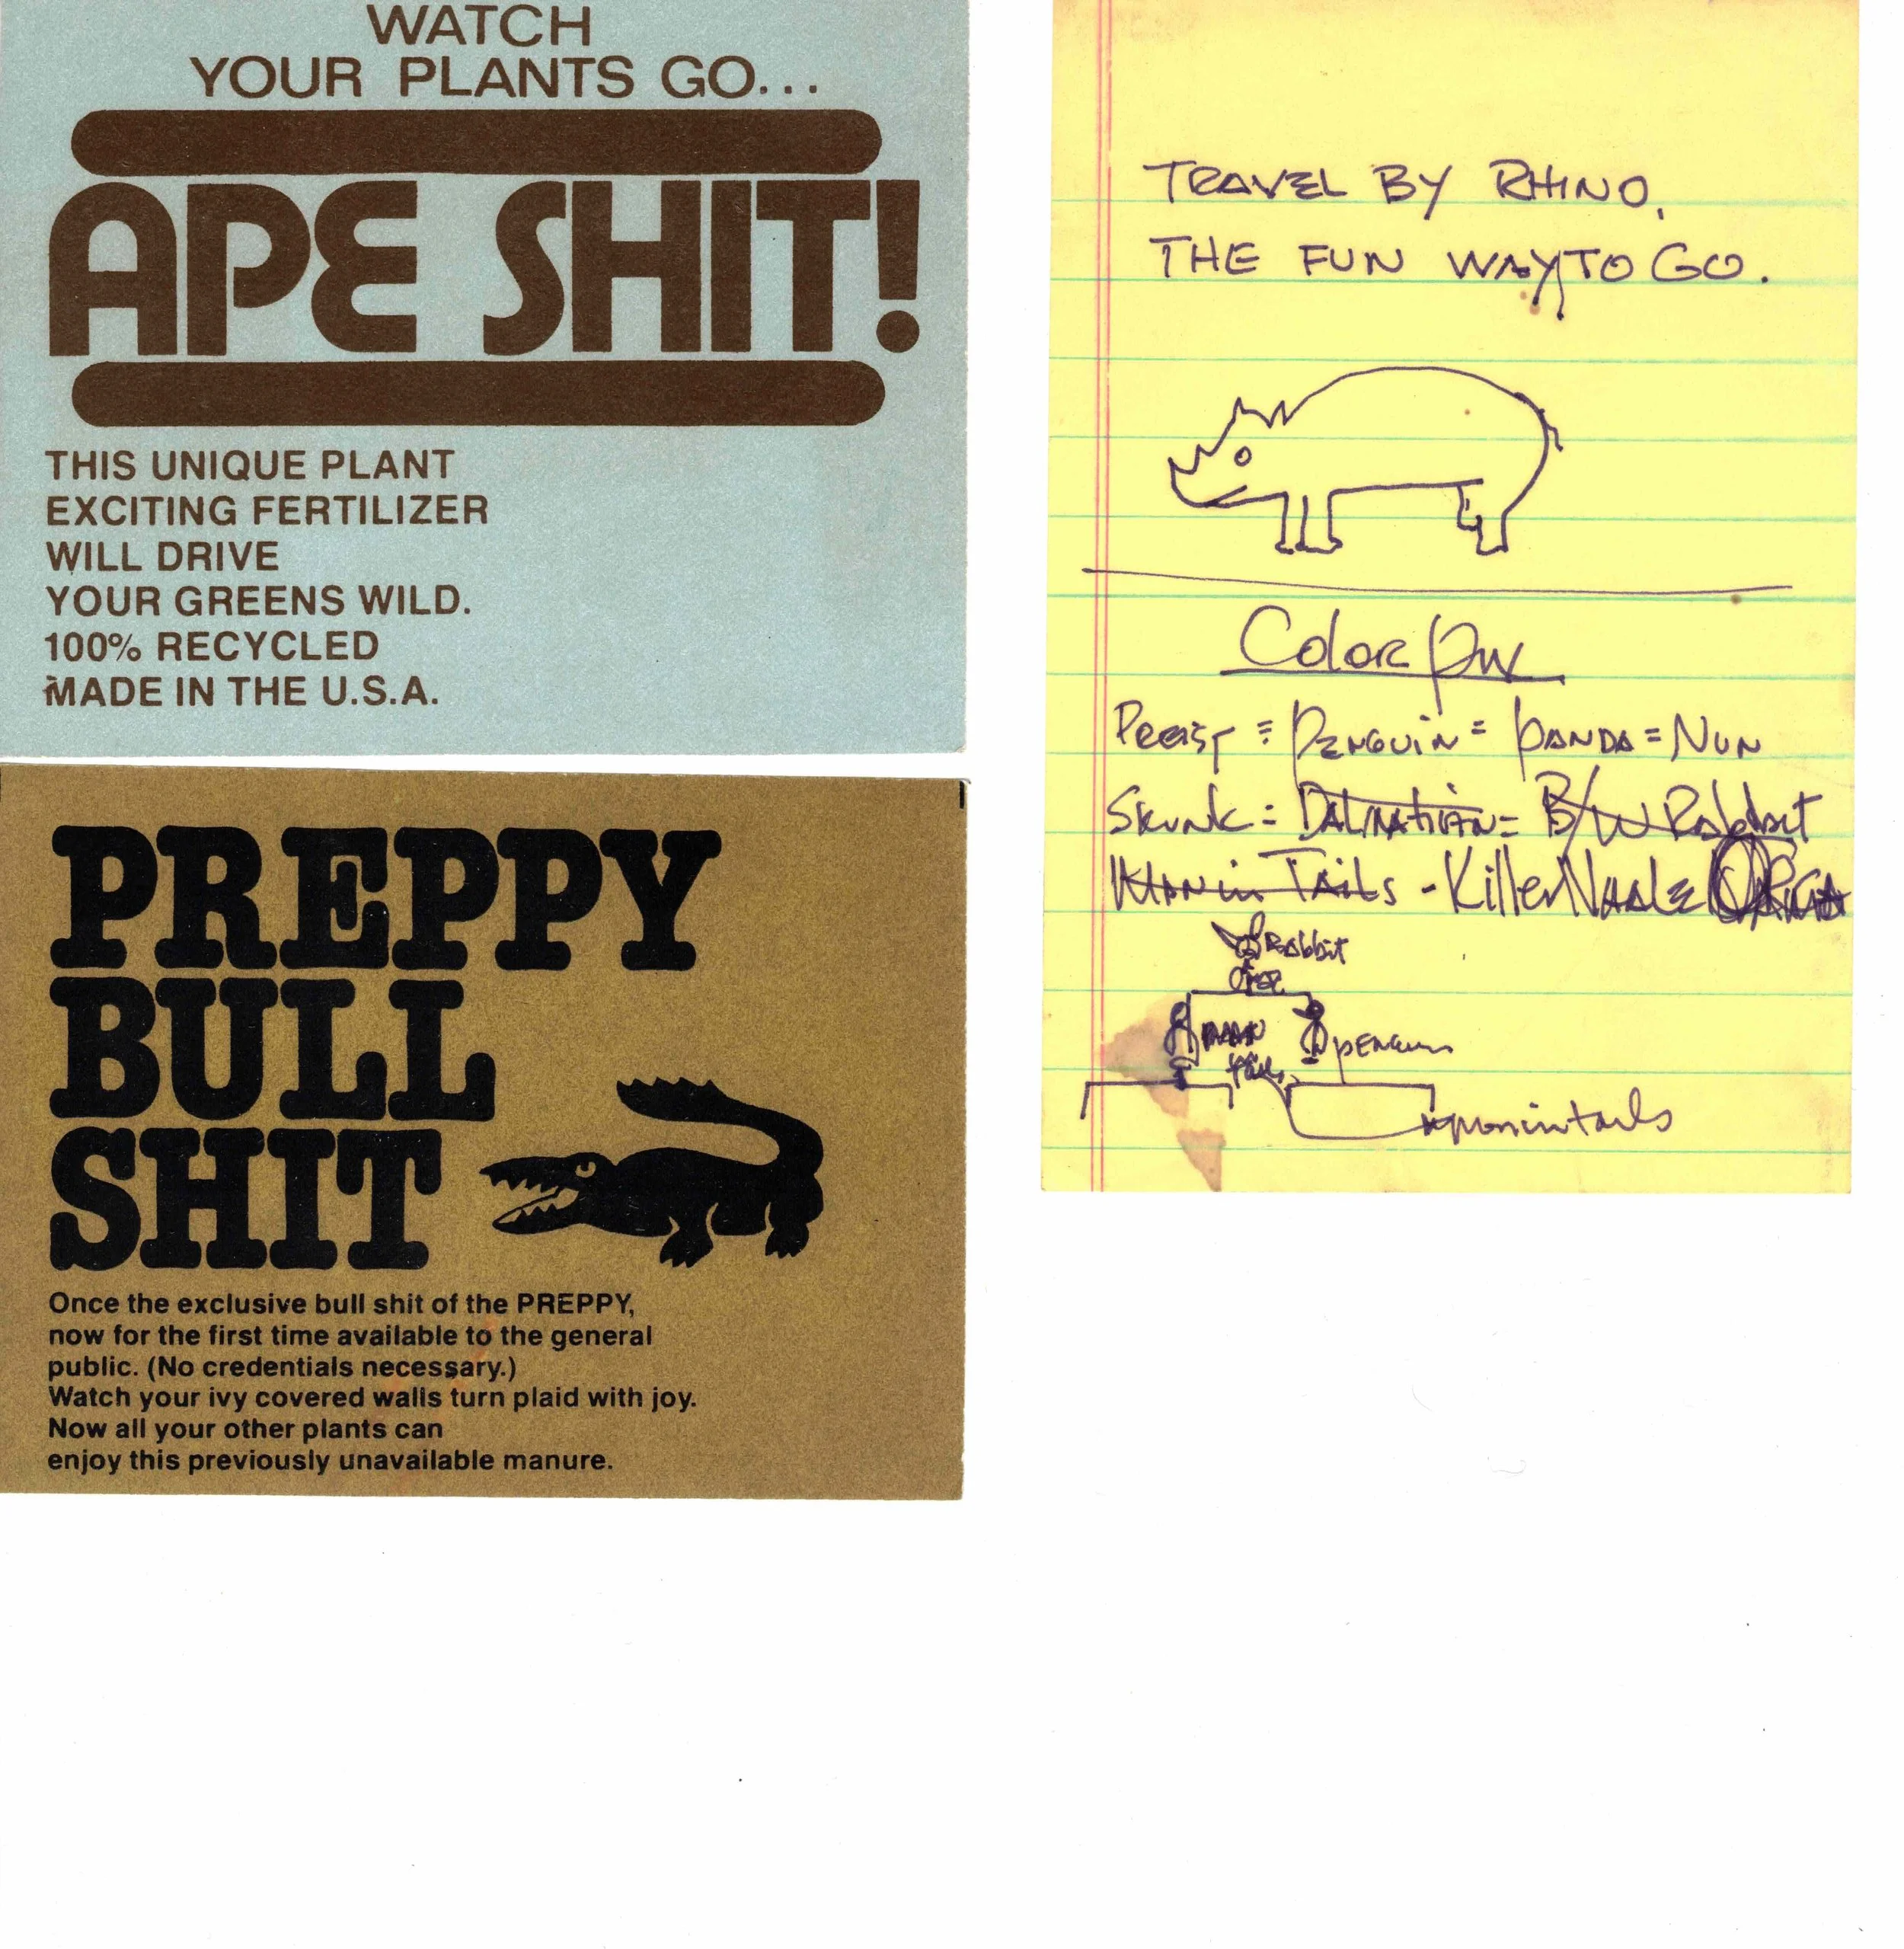 WATCH
YOUR PLANTS GO...
APE SHIT!
THIS UNIQUE PLANT
EXCITING FERTILIZER
WILL DRIVE
YOUR GREENS WILD.
100% RECYCLED
MADE IN THE U.S.A.
PREPPY
BULL
SHIT
Once the exclusive bull shit of the PREPPY,
now for the first time available to the general
public. (No credentials necessary.)
Watch your ivy covered walls turn plaid with joy.
Now all your other plants can
enjoy this previously unavailable manure.
TRAVEL BY RHINO.
THE FUN WAY TO GO.
Color
= PENGUIN = PANDA = NUN
Skunk = DALMATIAN = B/W Rabbit
in TAILS - Killer WHALE ORCA
Rabbit
PENGUIN
in tails